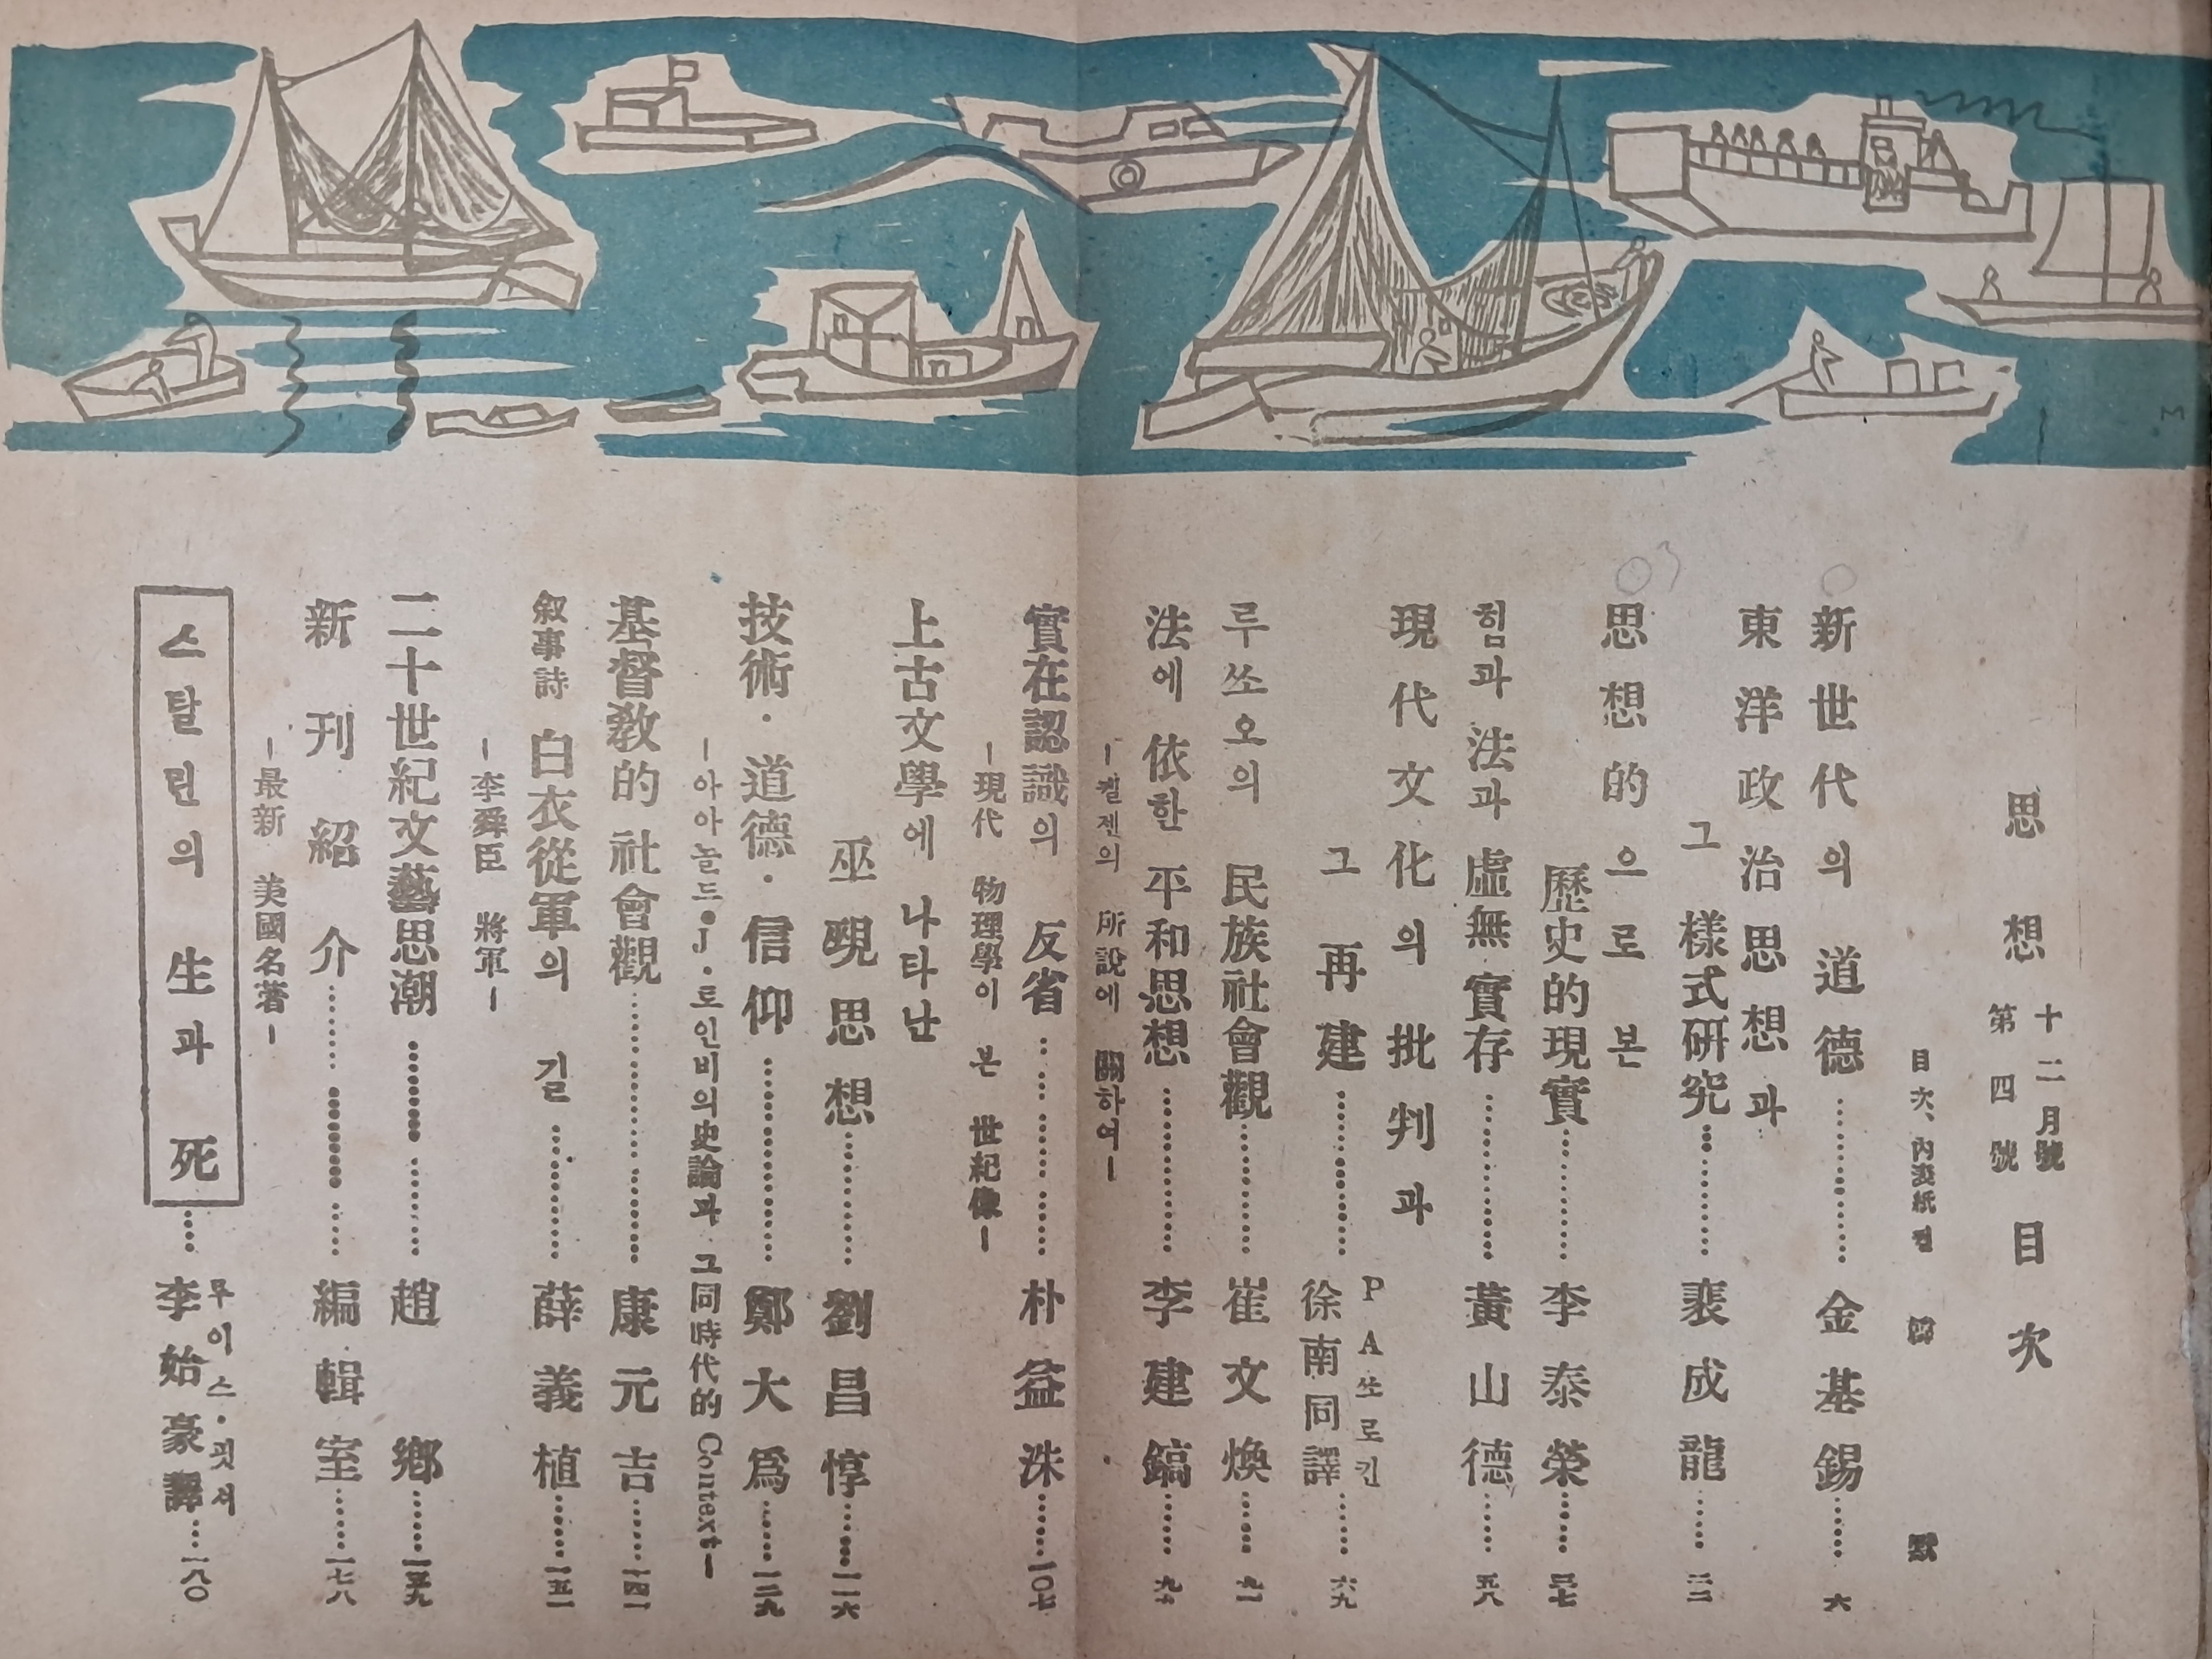 思想 十二月號 第四號 目次
目次、內表紙컽
新世代의 道德…………金基錫……六
東洋政治思想과
그 樣式硏究…………裵成龍……二二
思想的으로 본
歷史的現實…………李泰榮……三七
힘과 法과 虛無 實存…………黃山德……五八
現代文化의 批判과
그 再建…………P A 쏘로킨 徐南同譯……六九
루쏘오의 民族社會觀…………崔文煥……九一
法에 依한 平和思想…………李建鎬……九七
—켈젠의 所說에 關하여—
實在認識의 反省…………朴益洙……一〇七
—現代 物理學이 본 世紀像—
上古文學에 나타난
巫覡思想…………劉昌惇……一一六
技術・道德・信仰…………鄭大爲……一二九
—아아놀드・J・토인비의史論과 그同時代的 Context—
基督敎的 社會觀…………康元吉……一四一
敍事詩 白衣從軍의 길…………薛義植……一五一
—李舜臣 將軍—
二十世紀文藝思潮…………趙鄕……一五九
新刊紹介…………編輯室……一七八
—最新 美國名著—
스탈린의 生과 死……루이스・핏셔 李始豪譯……一八〇
M